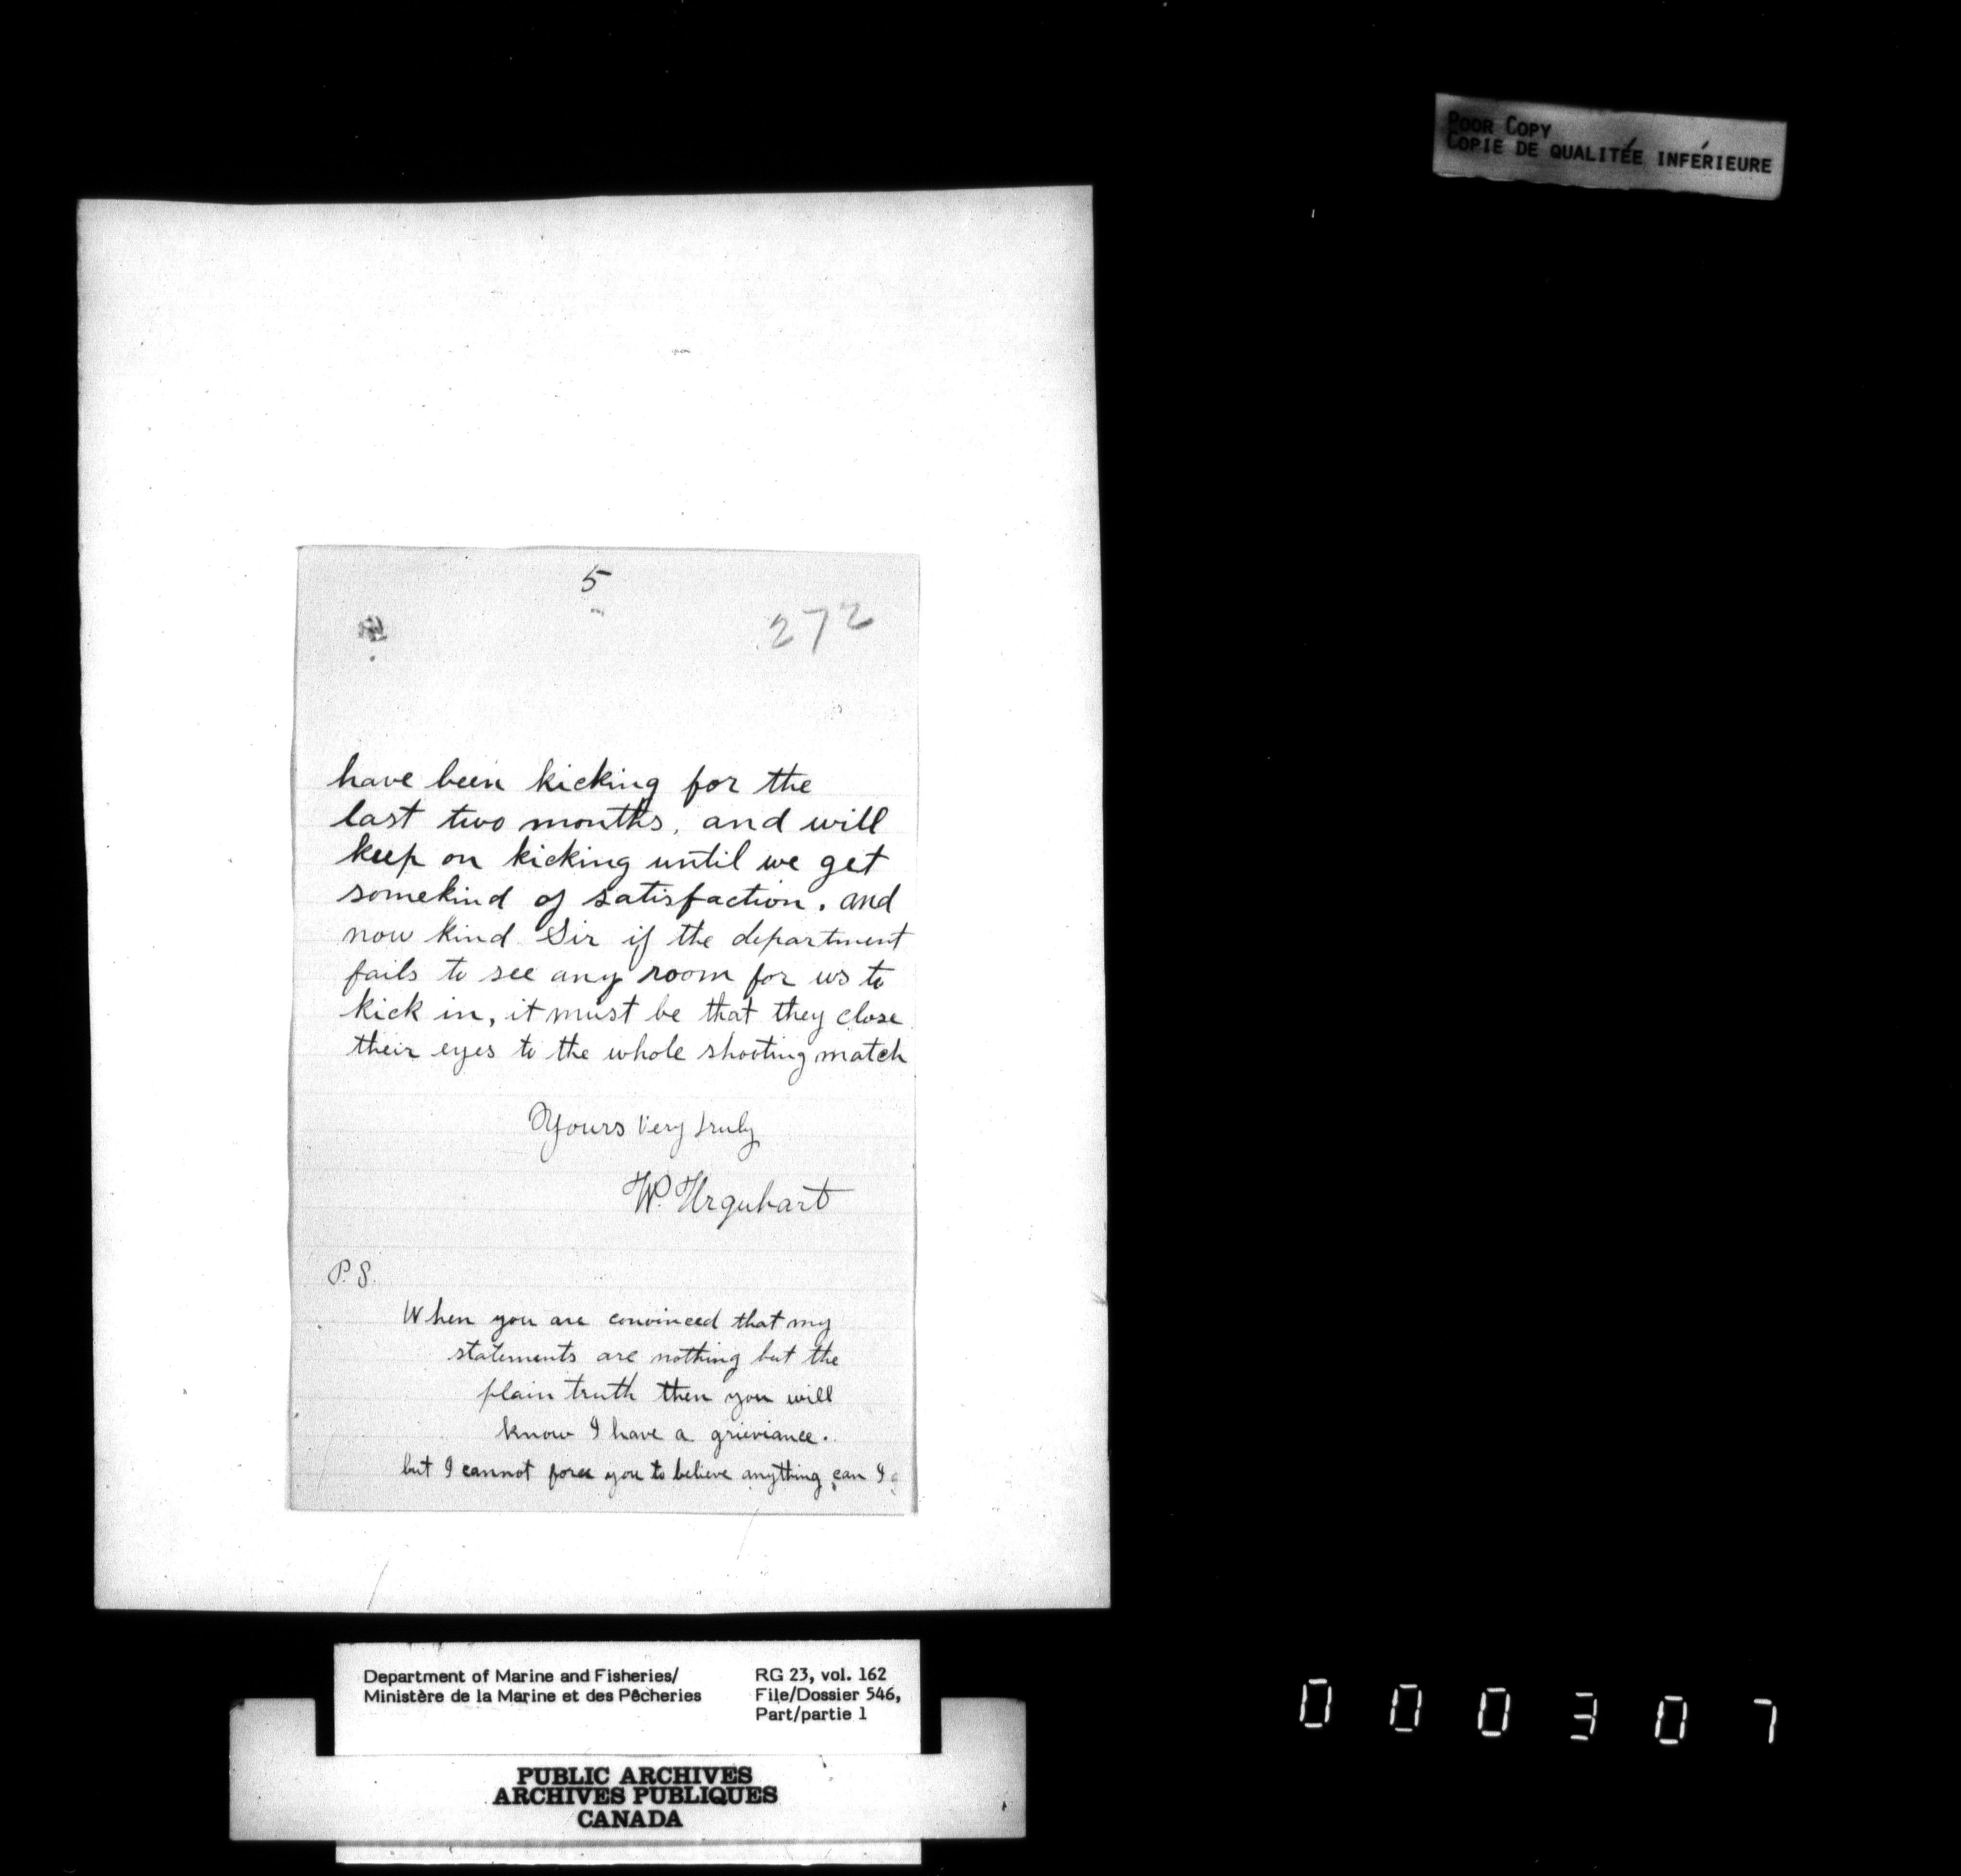 POOR COPY
COPIE DE QUALITÉE INFÉRIEURE
5
272
have been kicking for the
last two months, and will
keep on kicking until we get
somekind of satisfaction. and
now kind Sir if the department
fails to see any room for us to
kick in, it must be that they close
their eyes to the whole shooting match
Yours Very truly
W. Urquhart
P.S.
When you are convinced that my
statements are nothing but the
plain truth then you will
know I have a grieviance.
but I cannot force you to believe anything can I
Department of Marine and Fisheries/
Ministère de la Marine et des Pêcheries
RG 23, vol. 162
File/Dossier 546,
Part/partie 1
PUBLIC ARCHIVES
ARCHIVES PUBLIQUES
CANADA
000307